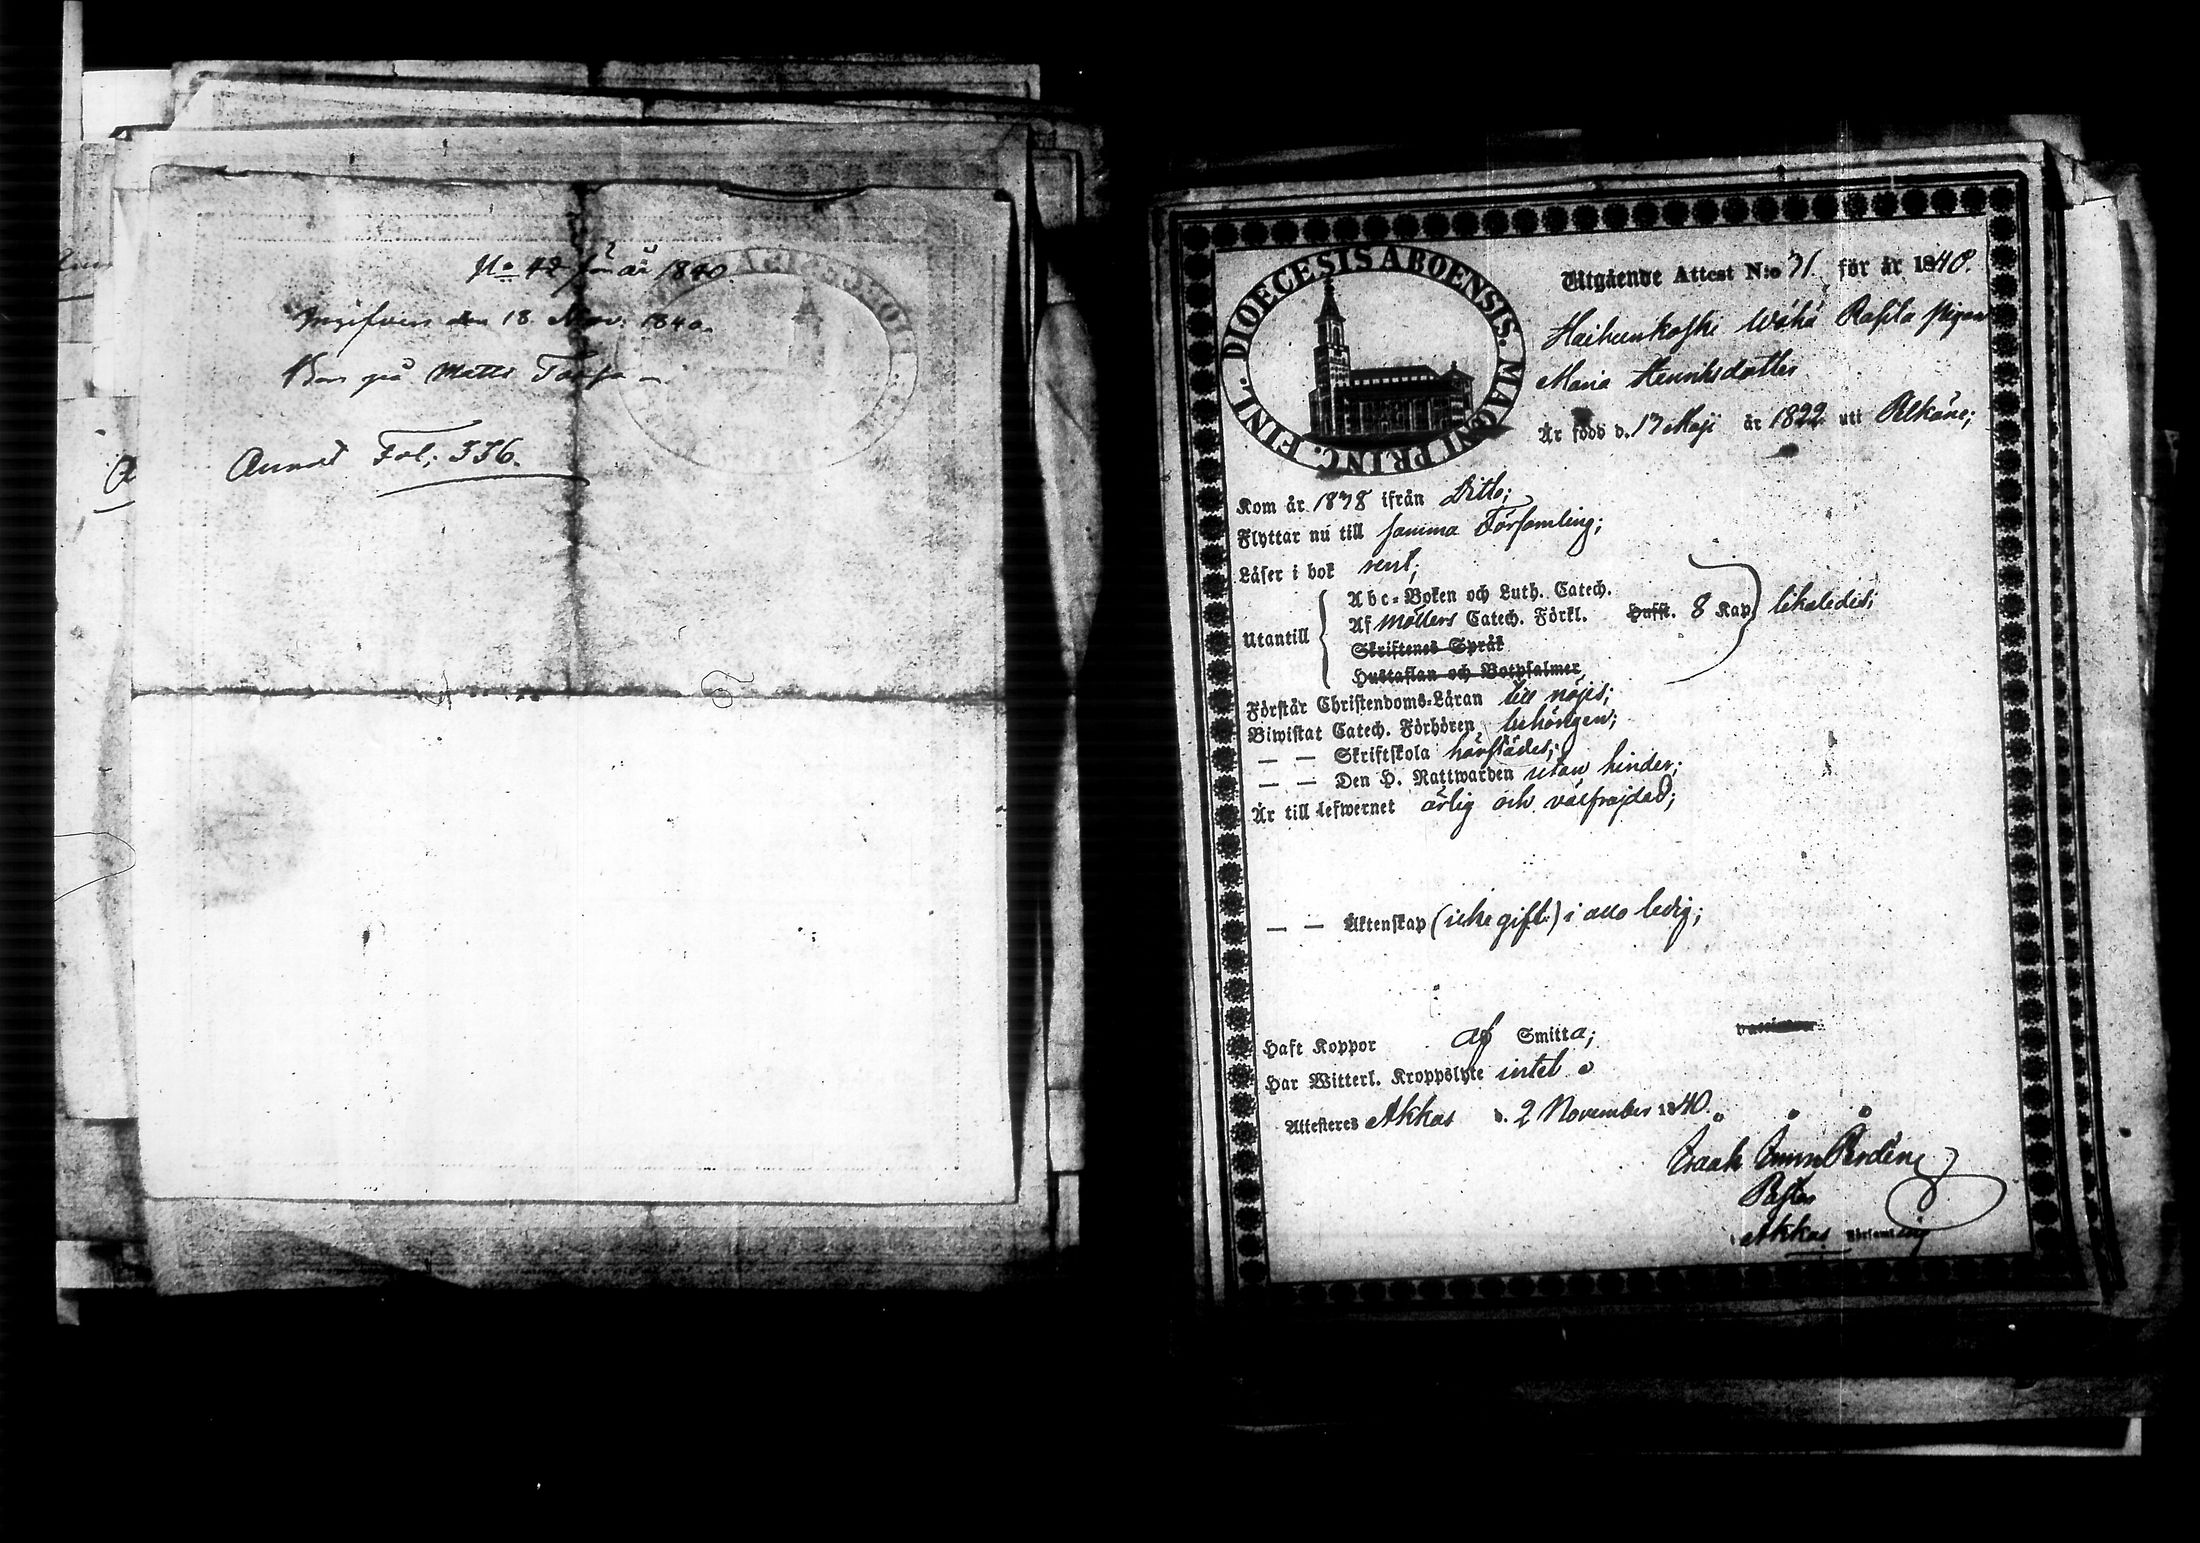 No 42 för år 1840
Ingifven den 18. Nov: 1840.
Bor på Matts
Annot Fol; 336.
DIOECESIS ABOENSIS. MAGNI PRINC. FINL.
Utgående Attest N:o 71. för år 1840.
Haihunkoski Wähä Rasila pigan
Maria Henriksdotter
Är född d. 17 Maji år 1822 uti Pelkäne;
Kom år 1838 ifrån Ditto;
Flyttar nu till samma Församling;
Läser i bok rent;
Utantill
Abc-Boken och Luth. Catech.
Af Möllers Catech. Förkl. Hufst. 8 Kap likaledes;
Skriftenes Språk
Hustaflan och Botpsalmer
Förstår Christendoms-Läran till nöjes;
Biwistat Catech. Förhören behörigen;
— — Skriftskola härstädes;
— — Den H. Nattwarden utan hinder;
Är till lefwernet ärlig och välfrajdad;
— — Äktenskap (icke gift) i allo ledig;
Haft Koppor af Smitta;
Har Witterl. Kroppslyte intet
Attesteres Akkas d. 2 November 1840.
Isaak
Pastor
i Akkas Församling